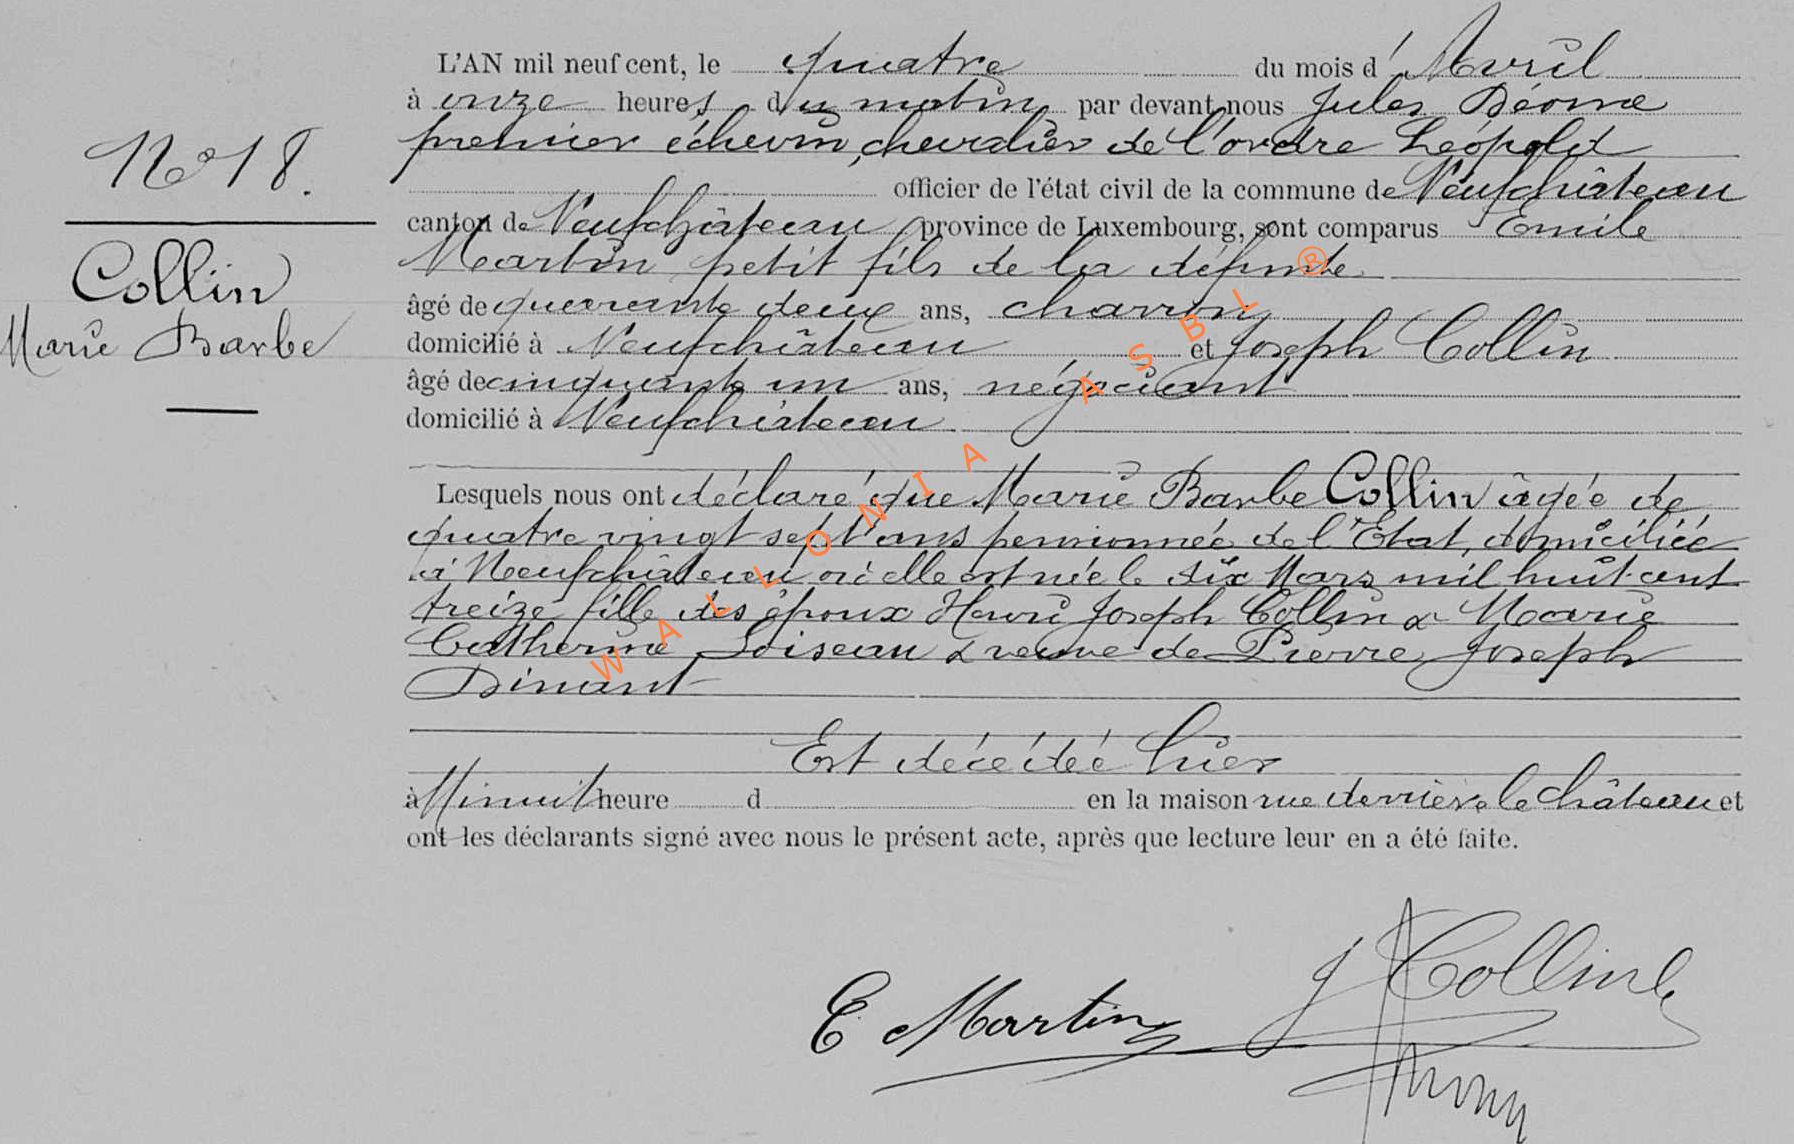 N° 18.
Collin
Marie Barbe
L'AN mil neuf cent, le quatre du mois d'Avril
à onze heures du matin par devant nous Jules
premier échevin, chevalier de l'ordre Léopold
officier de l'état civil de la commune de Neufchâteau
canton de Neufchâteau province de Luxembourg, sont comparus Emile
Martin petit fils de la défunte
âgé de quarante deux ans, charron
domicilié à Neufchâteau et Joseph Collin
âgé de cinquante un ans, négociant
domicilié à Neufchâteau
Lesquels nous ont déclaré que Marie Barbe Collin âgée de
quatre vingt sept ans pensionnée de l'Etat, domiciliée
à Neufchâteau où elle est née le six Mars mil huit cent
treize fille des époux Henri Joseph Collin & Marie
Catherine Loiseau & veuve de Pierre Joseph
Dinant
Est décédée hier
à Minuit heure d en la maison rue derrière le château et
ont les déclarants signé avec nous le présent acte, après que lecture leur en a été faite.
E Martin J Collin
WALLONIA ASBL ®